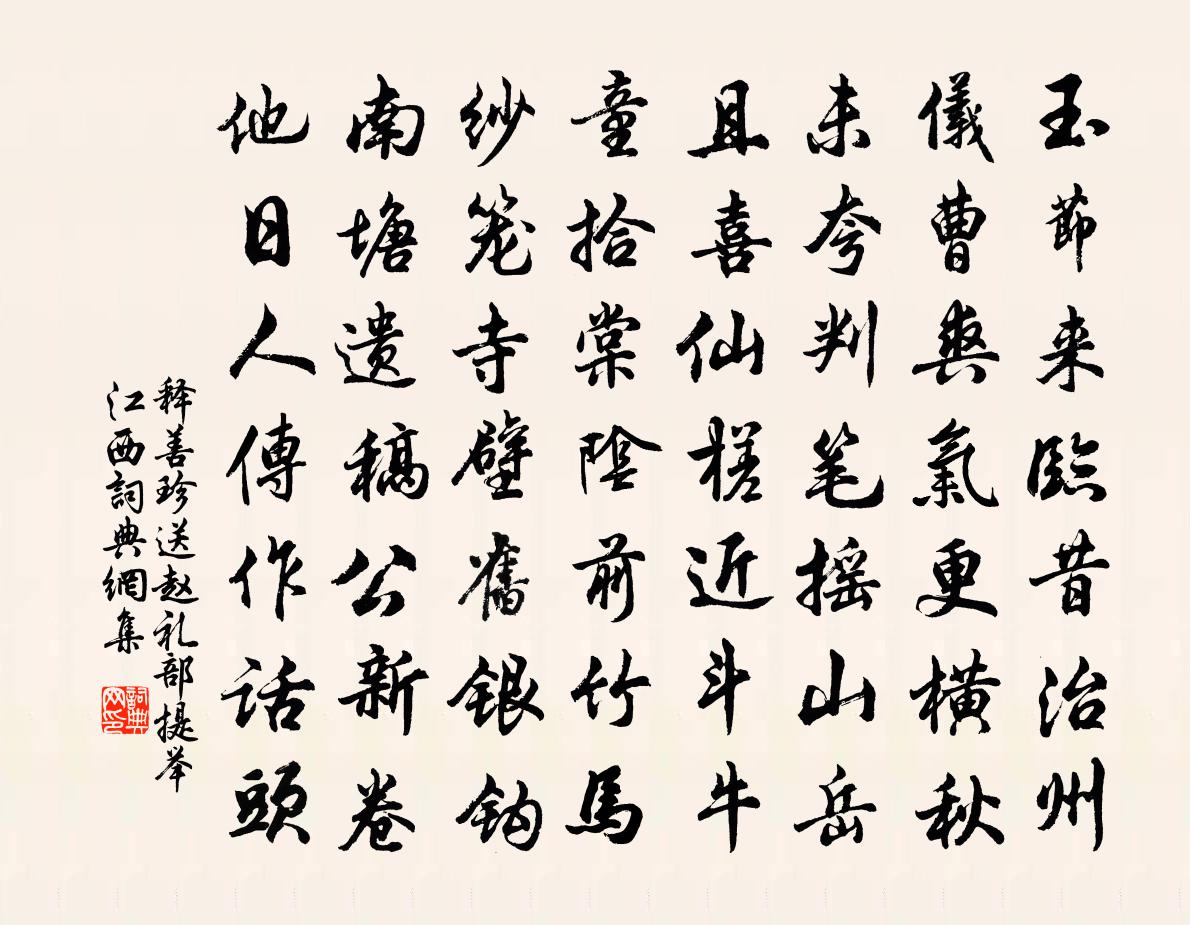 玉節来臨昔治州
儀曹爽氣更橫秋
未夸判笔摇山岳
且喜仙槎近斗牛
童拾棠陰前竹馬
纱笼寺壁舊银钩
南塘遗稿公新卷
他日人傳作话頭
释善珍送赵礼部提举
江西詞典網集
詞典网印